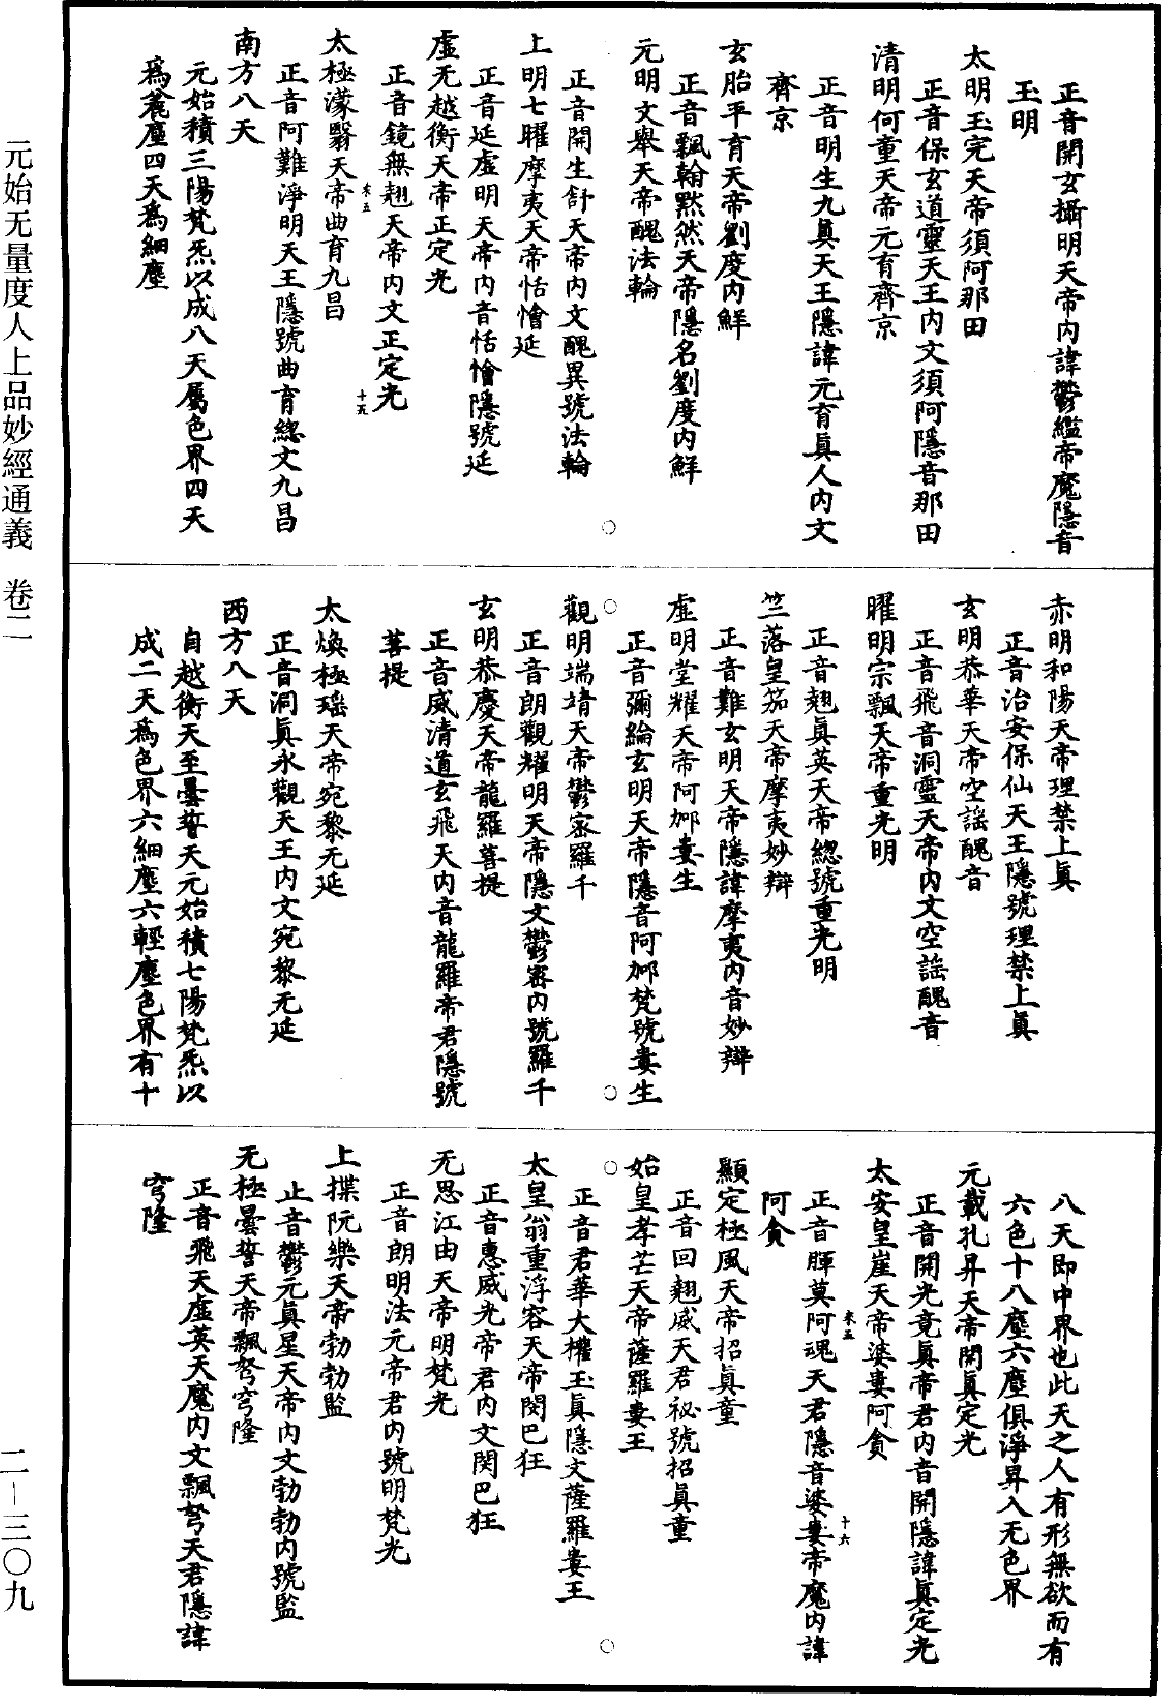 正音開玄攝明天帝内諱鬱繿帝魔隱音
玉明
太明玉完天帝須阿那田
正音保玄道靈天王内文須阿隱音那田
清明何重天帝元育齊京
正音明生九眞天王隱諱元育眞人内文
齊京
玄胎平育天帝劉度内鮮
正音飄翰黙然天帝隱名劉度内鮮
元明文舉天帝醜法輪
正音開生舒天帝内文醜異號法輪
上明七曜摩夷天帝恬憎延
正音延虚明天帝内音恬憎隱號延
虚无越衡天帝正定光
正音鏡無翹天帝内文正定光
來五
十五
太極濛翳天帝曲育九昌
正音阿難淨明天王隱號曲育總文九昌
南方八天
元始積三陽梵炁以成八天屬色界四天
爲麄塵四天爲細塵
赤明和陽天帝理禁上眞
正音治安保仙天王隱號理禁上眞
玄明恭華天帝空謡醜音
正音飛音洞靈天帝内文空謡醜音
曜明宗飄天帝重光明
正音翹眞英天帝總號重光明
竺落皇笳天帝摩夷妙辯
正音難玄明天帝隱諱摩夷内音妙辯
虚明堂耀天帝阿㖿婁生
正音彌綸玄明天帝隱音阿㖿梵號婁生
觀明端靖天帝鬱密羅千
正音朗觀耀明天帝隱文鬱密内號羅千
玄明恭慶天帝龍羅菩提
正音威清道玄飛天内音龍羅帝君隱號
菩提
太煥極瑶天帝宛黎无延
正音洞眞永觀天王内文宛黎无延
西方八天
自越衡天至曇誓天元始積七陽梵炁以
成二天爲色界六細塵六輕塵色界有十
八天即中界也此天之人有形無欲而有
六色十八塵六塵俱淨昇入无色界
元載孔昇天帝開眞定光
正音開光竟眞帝君内音開隱諱眞定光
太安皇崖天帝婆婁阿貪
正音睴莫阿魂天君隱音婆婁帝魔内諱
來五
十六
阿貪
顯定極風天帝招眞童
正音回翹威天君祕號招眞童
始皇孝芒天帝薩羅婁王
正音君華大權玉眞隱文薩羅婁王
太皇翁重浮容天帝閔巴狂
正音惠威光帝君内文閔巴狂
无思江由天帝明梵光
正音朗明法元帝君内號明梵光
上揲阮樂天帝勃勃監
正音鬱元眞星天帝内文勃勃内號監
无極曇誓天帝飄弩穹隆
正音飛天虚英天魔内文飄弩天君隱諱
穹隆
元始无量度人上品妙經通義　卷二
二—三〇九